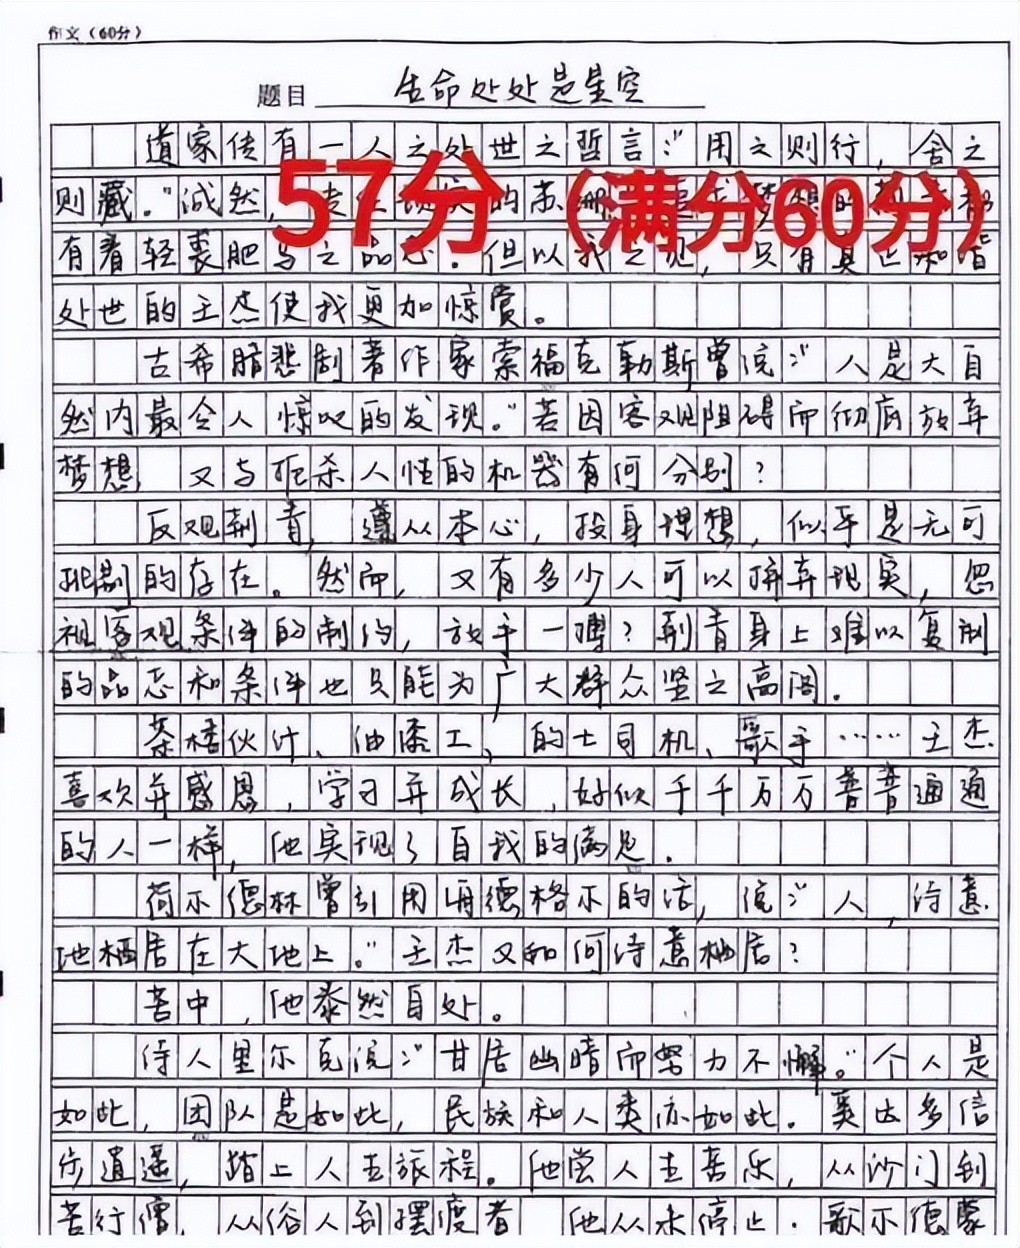 作文（60分）
题目 生命处处是星空
道家传有一人之处世之哲言："用之则行，舍之
则藏。"诚然，的苏
有着轻裘肥马之品志。但以我之见，只有真正和谐
处世的王杰使我更加惊赏。
57分（满分60分）
古希腊悲剧著作家索福克勒斯曾说："人是大自
然内最令人惊叹的发现。"若因客观阻碍而彻底放弃
梦想 又与扼杀人性的机器有何分别？
反观荆青，遵从本心，投身理想，似乎是无可
非制的存在。然而，又有多少人可以摒弃现实，忽
视客观条件的制约，放手一搏？荆青身上难以复制
的品志和条件也只能为广大群众坚之高阁。
茶楼伙计、油漆工、的士司机、歌手……王杰
喜欢并感恩，学习并成长，好似千千万万普普通通
的人一样，他实现了自我的满足。
荷尔德林曾引用海德格尔的话，说："人，诗意
地栖居在大地上。"王杰又如何诗意栖居？
苦中，他泰然自处。
诗人里尔克说："甘居幽暗而努力不懈。"个人是
如此，团队是如此，民族和人类亦如此。奚达多信
步逍遥，踏上人生旅程。他尝人生喜乐，从沙门到
苦行僧，从俗人到摆渡者 他从未停止。歌尔德蒙